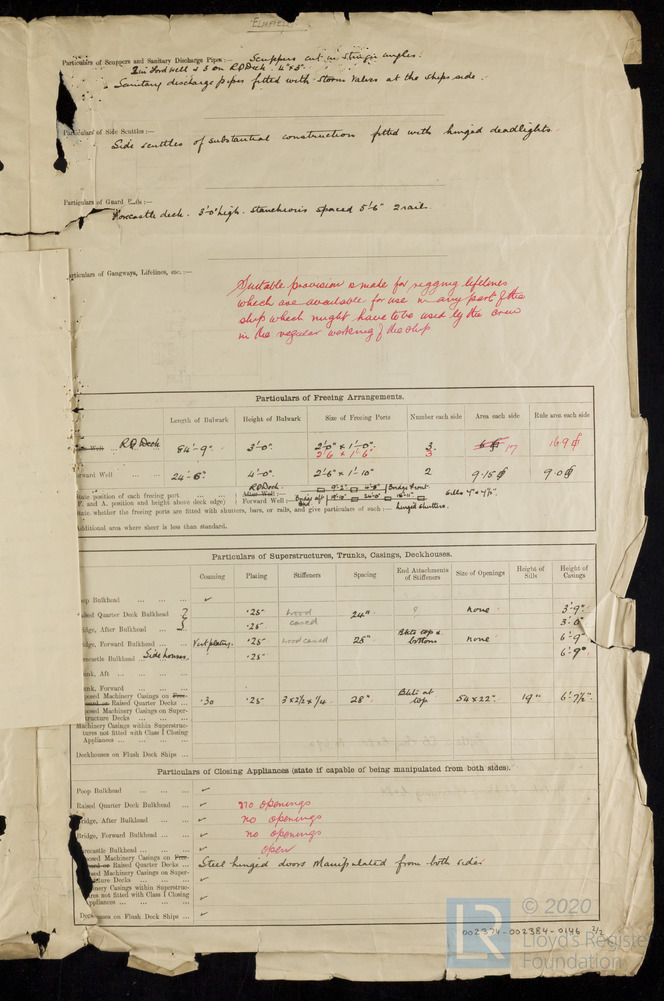 Particulars of Scuppers and Sanitary Discharge Pipes :— Scuppers cut in Stringer angles.
2 in Ford Well & 3 on R.Q.Deck 4" x 3"
Sanitary discharge pipes fitted with storm valves at the ships side.
Particulars of Side Scuttles :—
Side scuttles of substantial construction fitted with hinged deadlights.
Particulars of Guard Rails :—
Forecastle deck. 3'-0" high. stanchions spaced 5'-6" 2 rails.
articulars of Gangways, Lifelines, etc. :—
Suitable provision is made for rigging lifelines
which are available for use in any part of the
ship which might have to be used by the crew
in the regular working of the ship
Particulars of Freeing Arrangements.
Length of Bulwark Height of Bulwark Size of Freeing Ports Number each side Area each side Rule area each side
Well R.Q.Deck 84'-9" 3'-0" 2'-0" x 1'-0" 3 17 16.9
2'6 x 1'6" 3
orward Well 24'-6" 4'-0" 2'-6" x 1'-10" 2 9.15 9.0
R.Q.Deck
tate position of each freeing port After Well :—
F. and A. position and height above deck edge) Forward Well :— Bridge aft Bridge front Sills 4" & 4½"
tate whether the freeing ports are fitted with shutters, bars, or rails, and give particulars of such :— hinged shutters.
dditional area where sheer is less than standard.
Particulars of Superstructures, Trunks, Casings, Deckhouses.
Coaming Plating Stiffeners Spacing End Attachments of Stiffeners Size of Openings Height of Sills Height of Casings
oop Bulkhead
aised Quarter Deck Bulkhead .25 wood 24" ? none 3'-9"
ridge, After Bulkhead .25 cased 3'-0"
idge, Forward Bulkhead Vert plating. .25 wood cased 28" Bkts top & bottom none 6'-9"
recastle Bulkhead Side houses .25 6'-9"
unk, Aft
unk, Forward
posed Machinery Casings on Free-
board or Raised Quarter Decks .30 .25 3 x 2½ x ¼ 28" Bkts at top 54 x 22" 19" 6'-7½"
osed Machinery Casings on Super-
structure Decks
Machinery Casings within Superstruc-
tures not fitted with Class I Closing
Appliances
Deckhouses on Flush Deck Ships
Particulars of Closing Appliances (state if capable of being manipulated from both sides).
Poop Bulkhead
Raised Quarter Deck Bulkhead no openings
ridge, After Bulkhead no openings
Bridge, Forward Bulkhead no openings
recastle Bulkhead open
posed Machinery Casings on Free-
board or Raised Quarter Decks Steel hinged doors manipulated from both sides
sed Machinery Casings on Super-
ture Decks
inery Casings within Superstruc-
res not fitted with Class I Closing
ppliances
Deckhouses on Flush Deck Ships
LR
© 2020
Lloyd's Registe
Foundation
002374-002384-0146 2/2